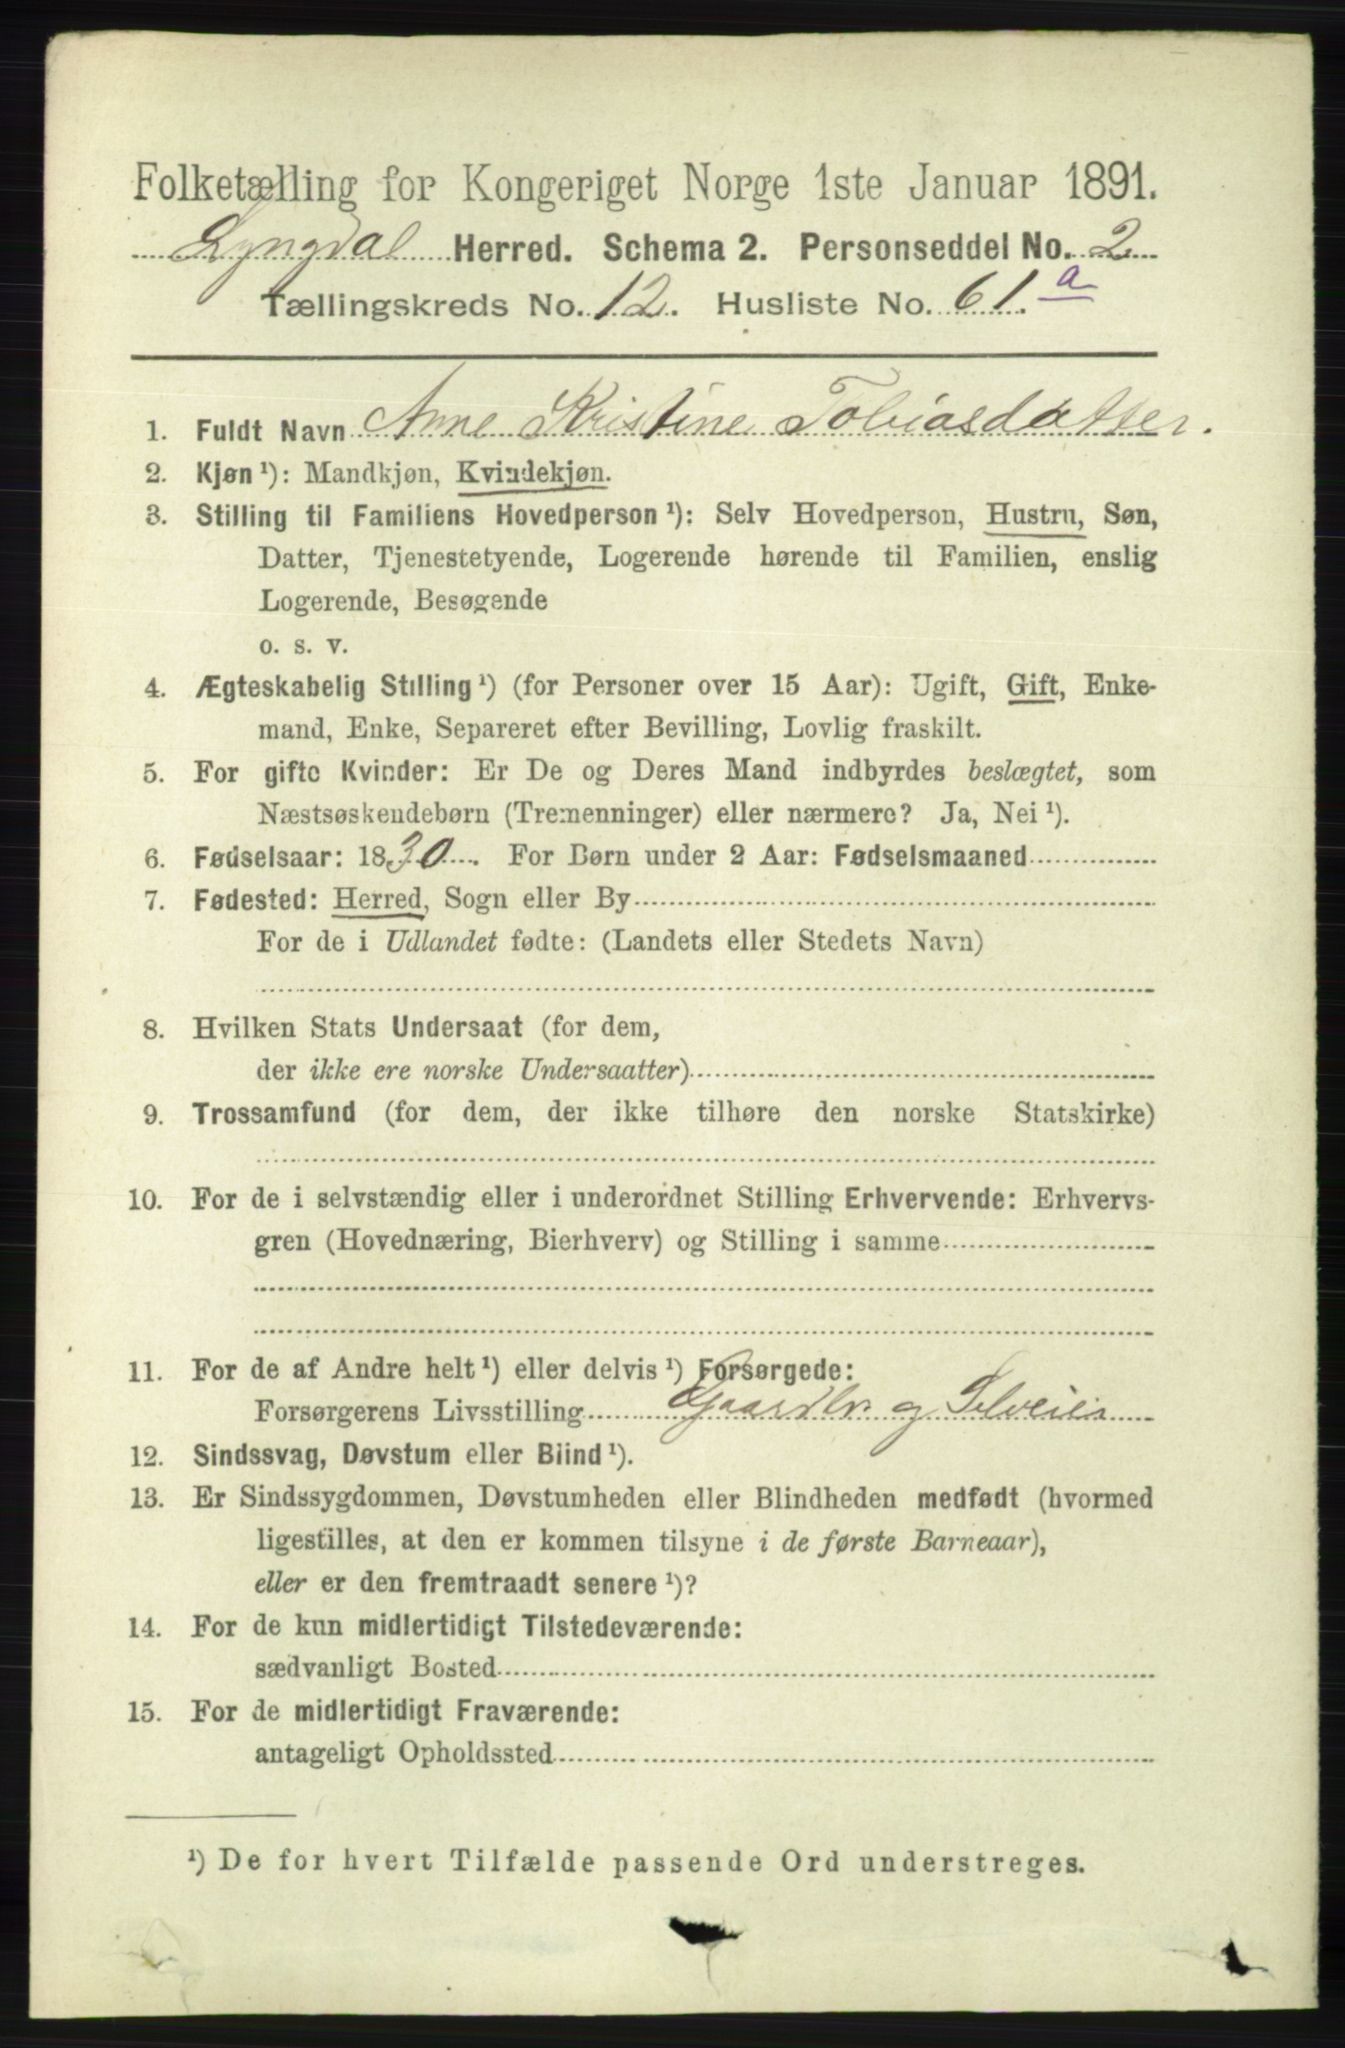 Folketælling for Kongeriget Norge 1ste Januar 1891.
Lyngdal Herred. Schema 2. Personseddel No. 2
Tællingskreds No. 12. Husliste No. 61.a
1. Fuldt Navn Anne Kristine Tobiasdatter.
2. Kjøn ¹): Mandkjøn, Kvindekjøn.
3. Stilling til Familiens Hovedperson ¹): Selv Hovedperson, Hustru, Søn,
Datter, Tjenestetyende, Logerende hørende til Familien, enslig
Logerende, Besøgende
o. s. v.
4. Ægteskabelig Stilling ¹) (for Personer over 15 Aar): Ugift, Gift, Enke-
mand, Enke, Separeret efter Bevilling, Lovlig fraskilt.
5. For gifte Kvinder: Er De og Deres Mand indbyrdes beslægtet, som
Næstsøskendebørn (Tremenninger) eller nærmere? Ja, Nei ¹).
6. Fødselsaar: 1830. For Børn under 2 Aar: Fødselsmaaned
7. Fødested: Herred, Sogn eller By
For de i Udlandet fødte: (Landets eller Stedets Navn)
8. Hvilken Stats Undersaat (for dem,
der ikke ere norske Undersaatter)
9. Trossamfund (for dem, der ikke tilhøre den norske Statskirke)
10. For de i selvstændig eller i underordnet Stilling Erhvervende: Erhvervs-
gren (Hovednæring, Bierhverv) og Stilling i samme
11. For de af Andre helt ¹) eller delvis ¹) Forsørgede:
Forsørgerens Livsstilling Gaardbr. og Selveier
12. Sindssvag, Døvstum eller Blind ¹).
13. Er Sindssygdommen, Døvstumheden eller Blindheden medfødt (hvormed
ligestilles, at den er kommen tilsyne i de første Barneaar),
eller er den fremtraadt senere ¹)?
14. For de kun midlertidigt Tilstedeværende:
sædvanligt Bosted
15. For de midlertidigt Fraværende:
antageligt Opholdssted
¹) De for hvert Tilfælde passende Ord understreges.